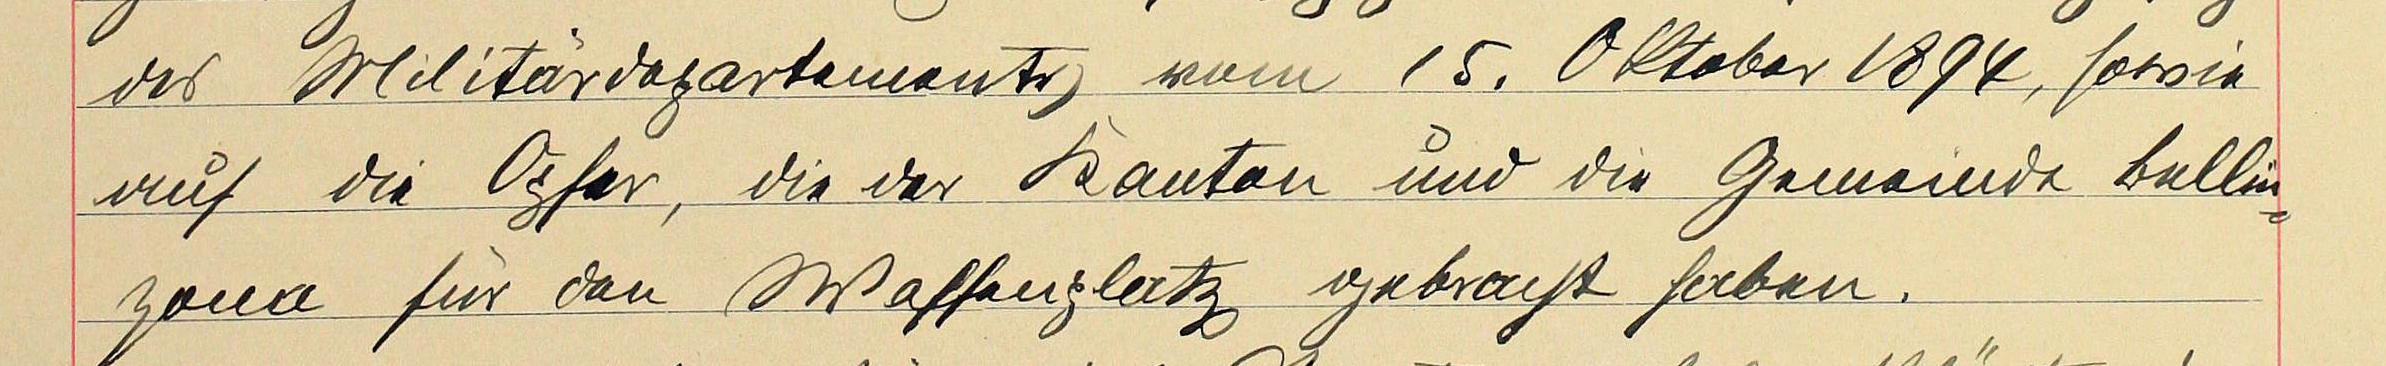 des Militärdepartements vom 15. Oktober 1894, sowie
auf die Opfer, die der Kanton und die Gemeinde Bellin-
zona für den Waffenplatz gebracht haben.